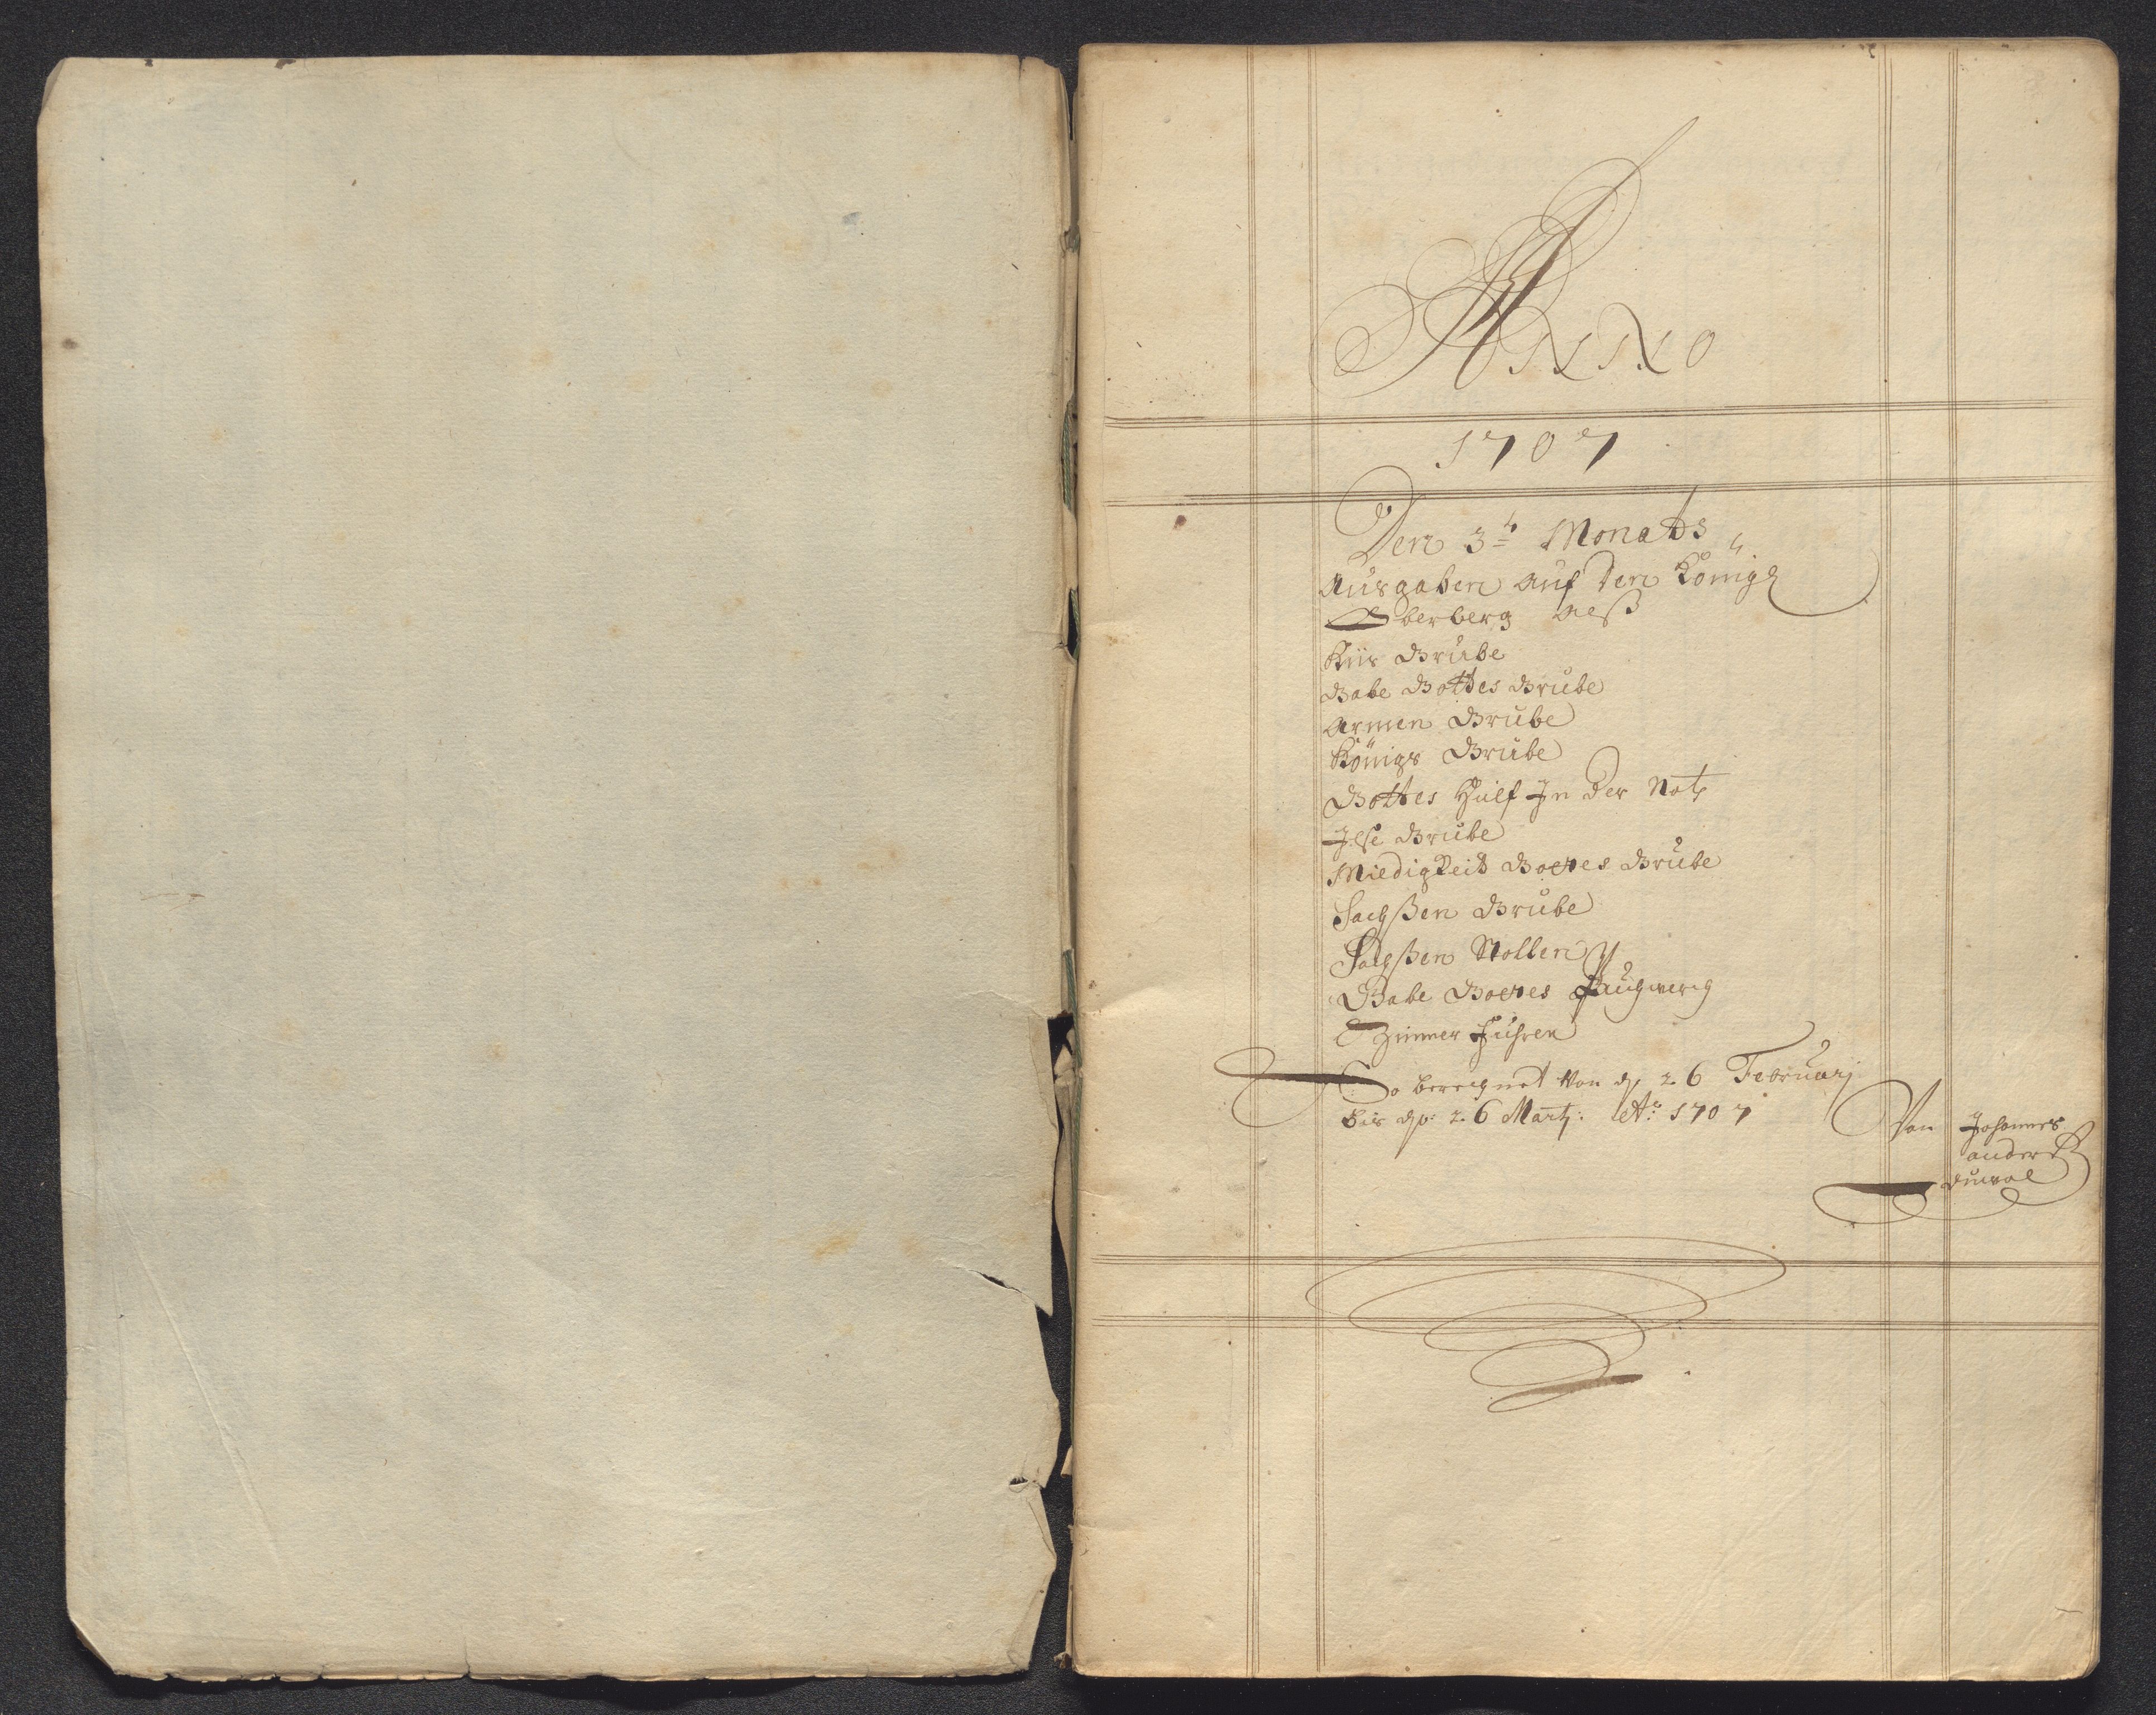 ANNO
1707
Den 3t Monats
Ausgaben auf den König
Oberberg als
Kiis Grube
Gabe Gottes Grube
Armen Grube
Königs Grube
Gottes Hülf In der Not
Grube
Mildigkeit Gottes Grube
Sachßen Grube
Sachßen Stollen
Gabe Gottes
Zimmer Fuhren
So berechnet Von dn 26 Februarj
bis dn: 26 Martj: Ao: 1707
Von Johannes